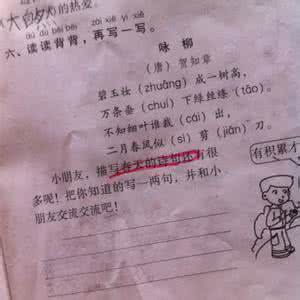 (大自然)的热爱。
dú dú bèi bèi zài xiě yì xiě
六、读读背背,再写一写。
咏 柳
(唐)贺知章
碧玉妆(zhuāng)成一树高,
万条垂(chuí)下绿丝绦(tāo)。
不知细叶谁裁(cái)出,
二月春风似(sì)剪(jiǎn)刀。
小朋友,描写春天的诗句还有很
多呢!把你知道的写一两句,并和小
朋友交流交流吧!
有积累才